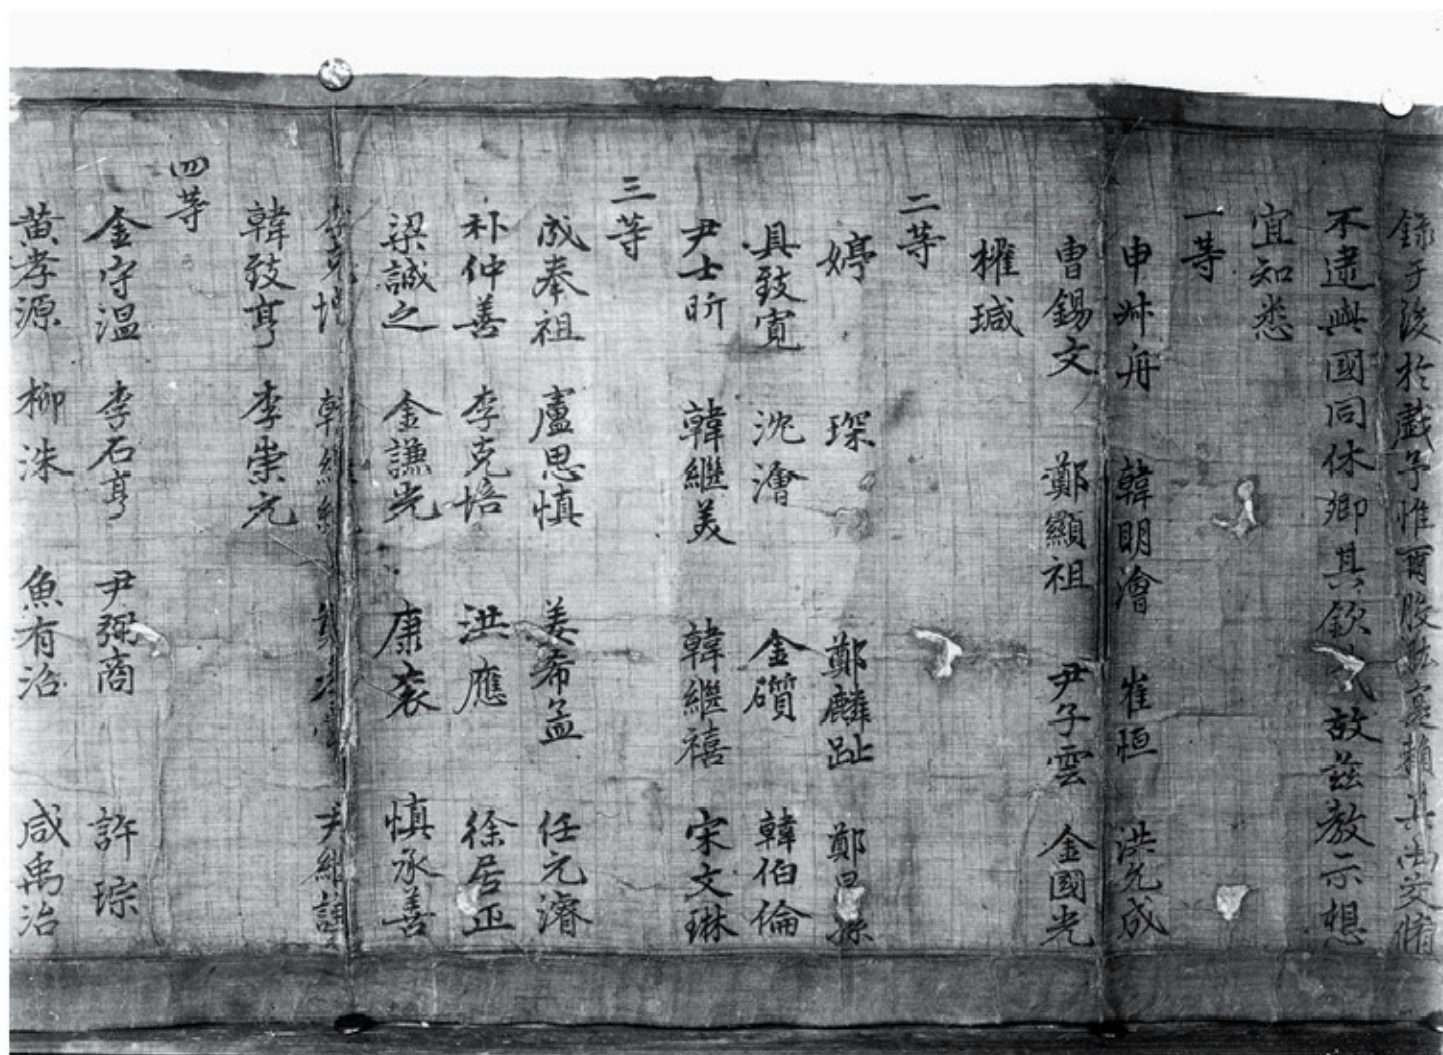 錄于後於戱予惟爾股肱寔賴其出交脩
不逮與國同休卿其欽 故茲教示想
宜知悉
一等
申叔舟 韓明澮 崔恒 洪允成
曺錫文 鄭顯祖 尹子雲 金國光
權瑊
二等
婷 琛 鄭麟趾 鄭
具致寬 沈澮 金礩 韓伯倫
尹士昕 韓繼美 韓繼禧 宋文琳
三等
成奉祖 盧思愼 姜希孟 任元濬
朴仲善 李克培 洪應 徐居正
梁誠之 金謙光 康袞 愼承善
李克 韓繼 尹繼
韓致亨 李崇元
四等
金守溫 李石亨 尹弼商 許琮
黃孝源 柳洙 魚有沼 咸禹治